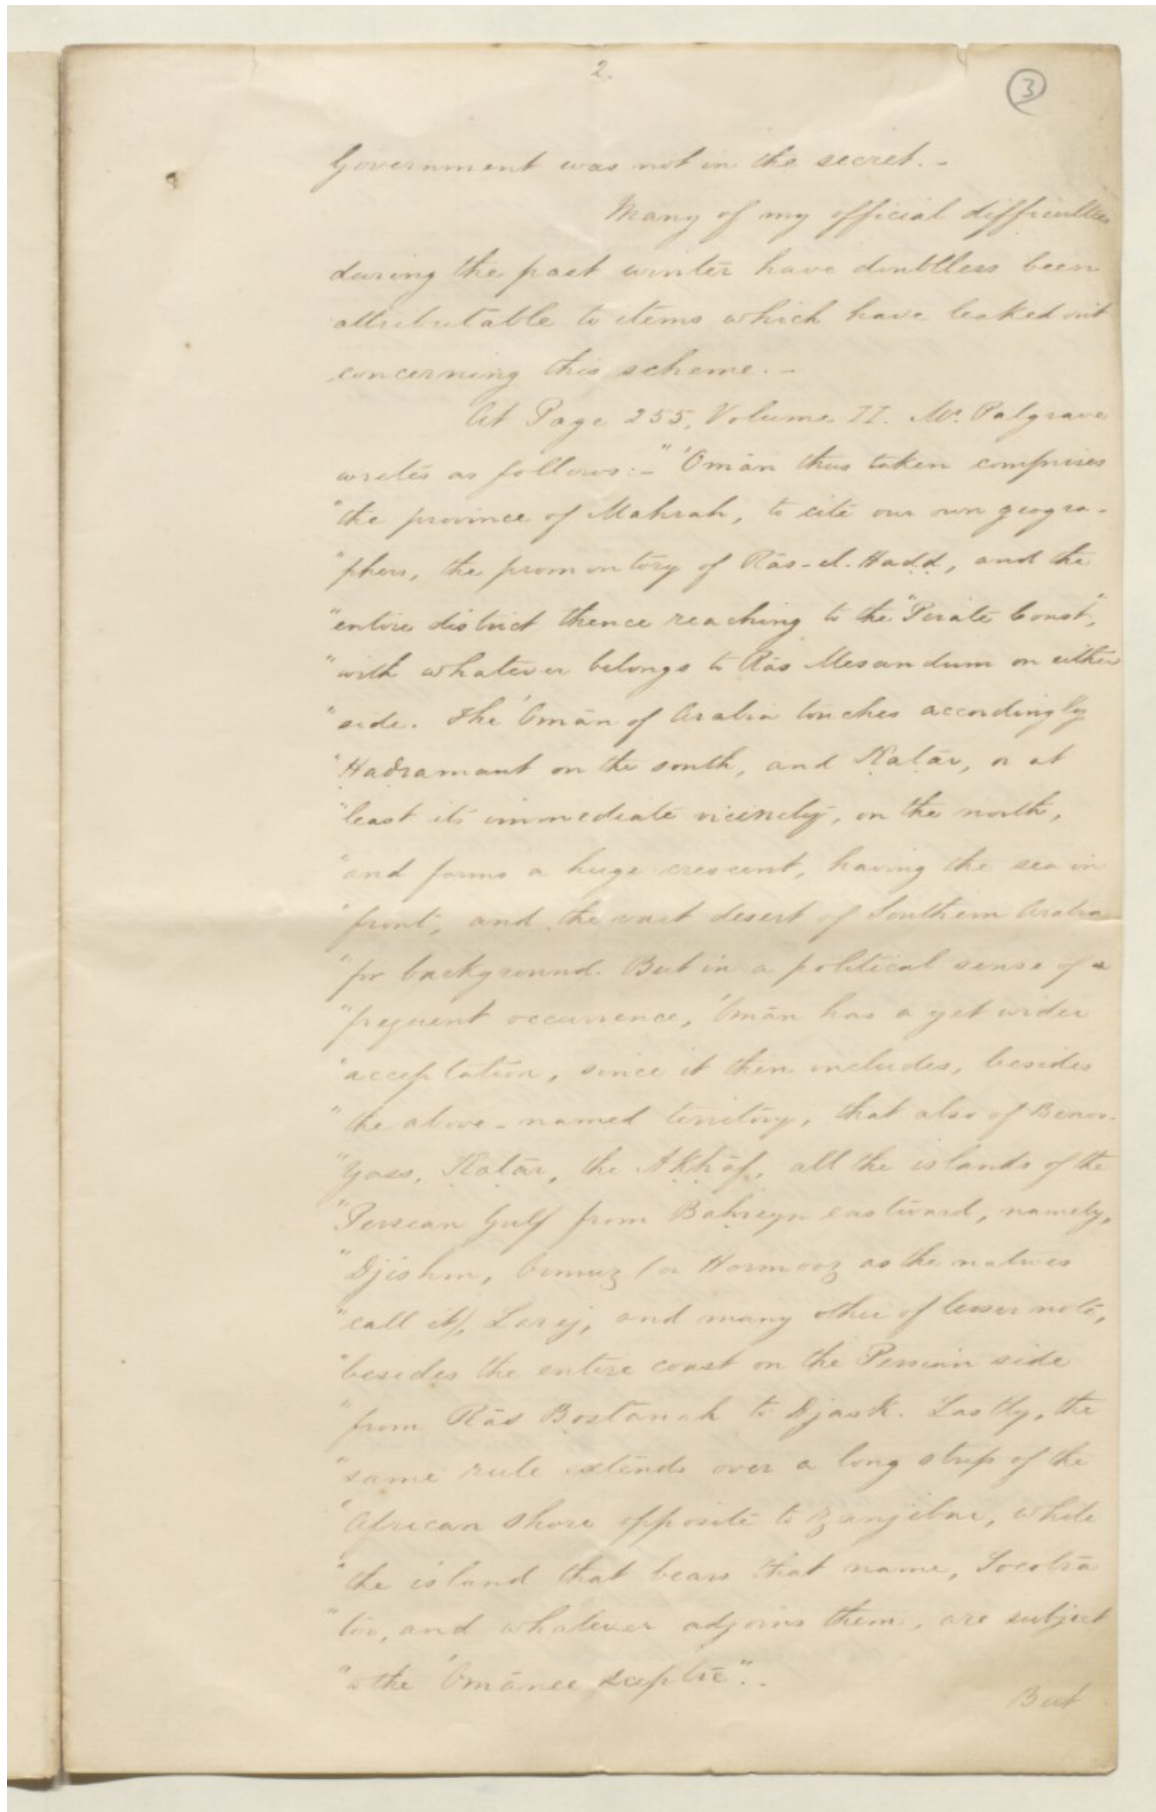 2.
3
Government was not in the secret. -
Many of my official difficulties
during the past winter have doubtless been
attributable to items which have leaked out
concerning this scheme. -
At Page 255, Volume II. Mr. Palgrave
writes as follows:- "'Omān thus taken comprises
"the province of Mahrah, to cite our own geogra-
"phers, the promontory of Rās-el-Ḥadd, and the
"entire district thence reaching to the "Pirate Coast",
"with whatever belongs to Rās Mesandum on either
"side. The 'Omān of Arabia touches accordingly
"Ḥaḍramaut on the south, and Ḳaṭar, or at
"least its immediate vicinity, on the north,
"and forms a huge crescent, having the sea in
"front, and the vast desert of Southern Arabia
"for background. But in a political sense of
"frequent occurrence, 'Omān has a yet wider
"acceptation, since it then includes, besides
"the above-named territory, that also of Benoo-
"Yass, Ḳaṭar, the Aḳhāf, all the islands of the
"Persian Gulf from Baḥreyn eastward, namely,
"Djishm, Ormuz (or Hormooz as the natives
"call it), Larej, and many other of lesser note,
"besides the entire coast on the Persian side
"from Rās Bostanah to Djask. Lastly, the
"same rule extends over a long strip of the
"African shore opposite to Zanjibar, while
"the island that bears that name, Socotra
"too, and whatever adjoins them, are subject
"to the 'Omānee sceptre"..
But